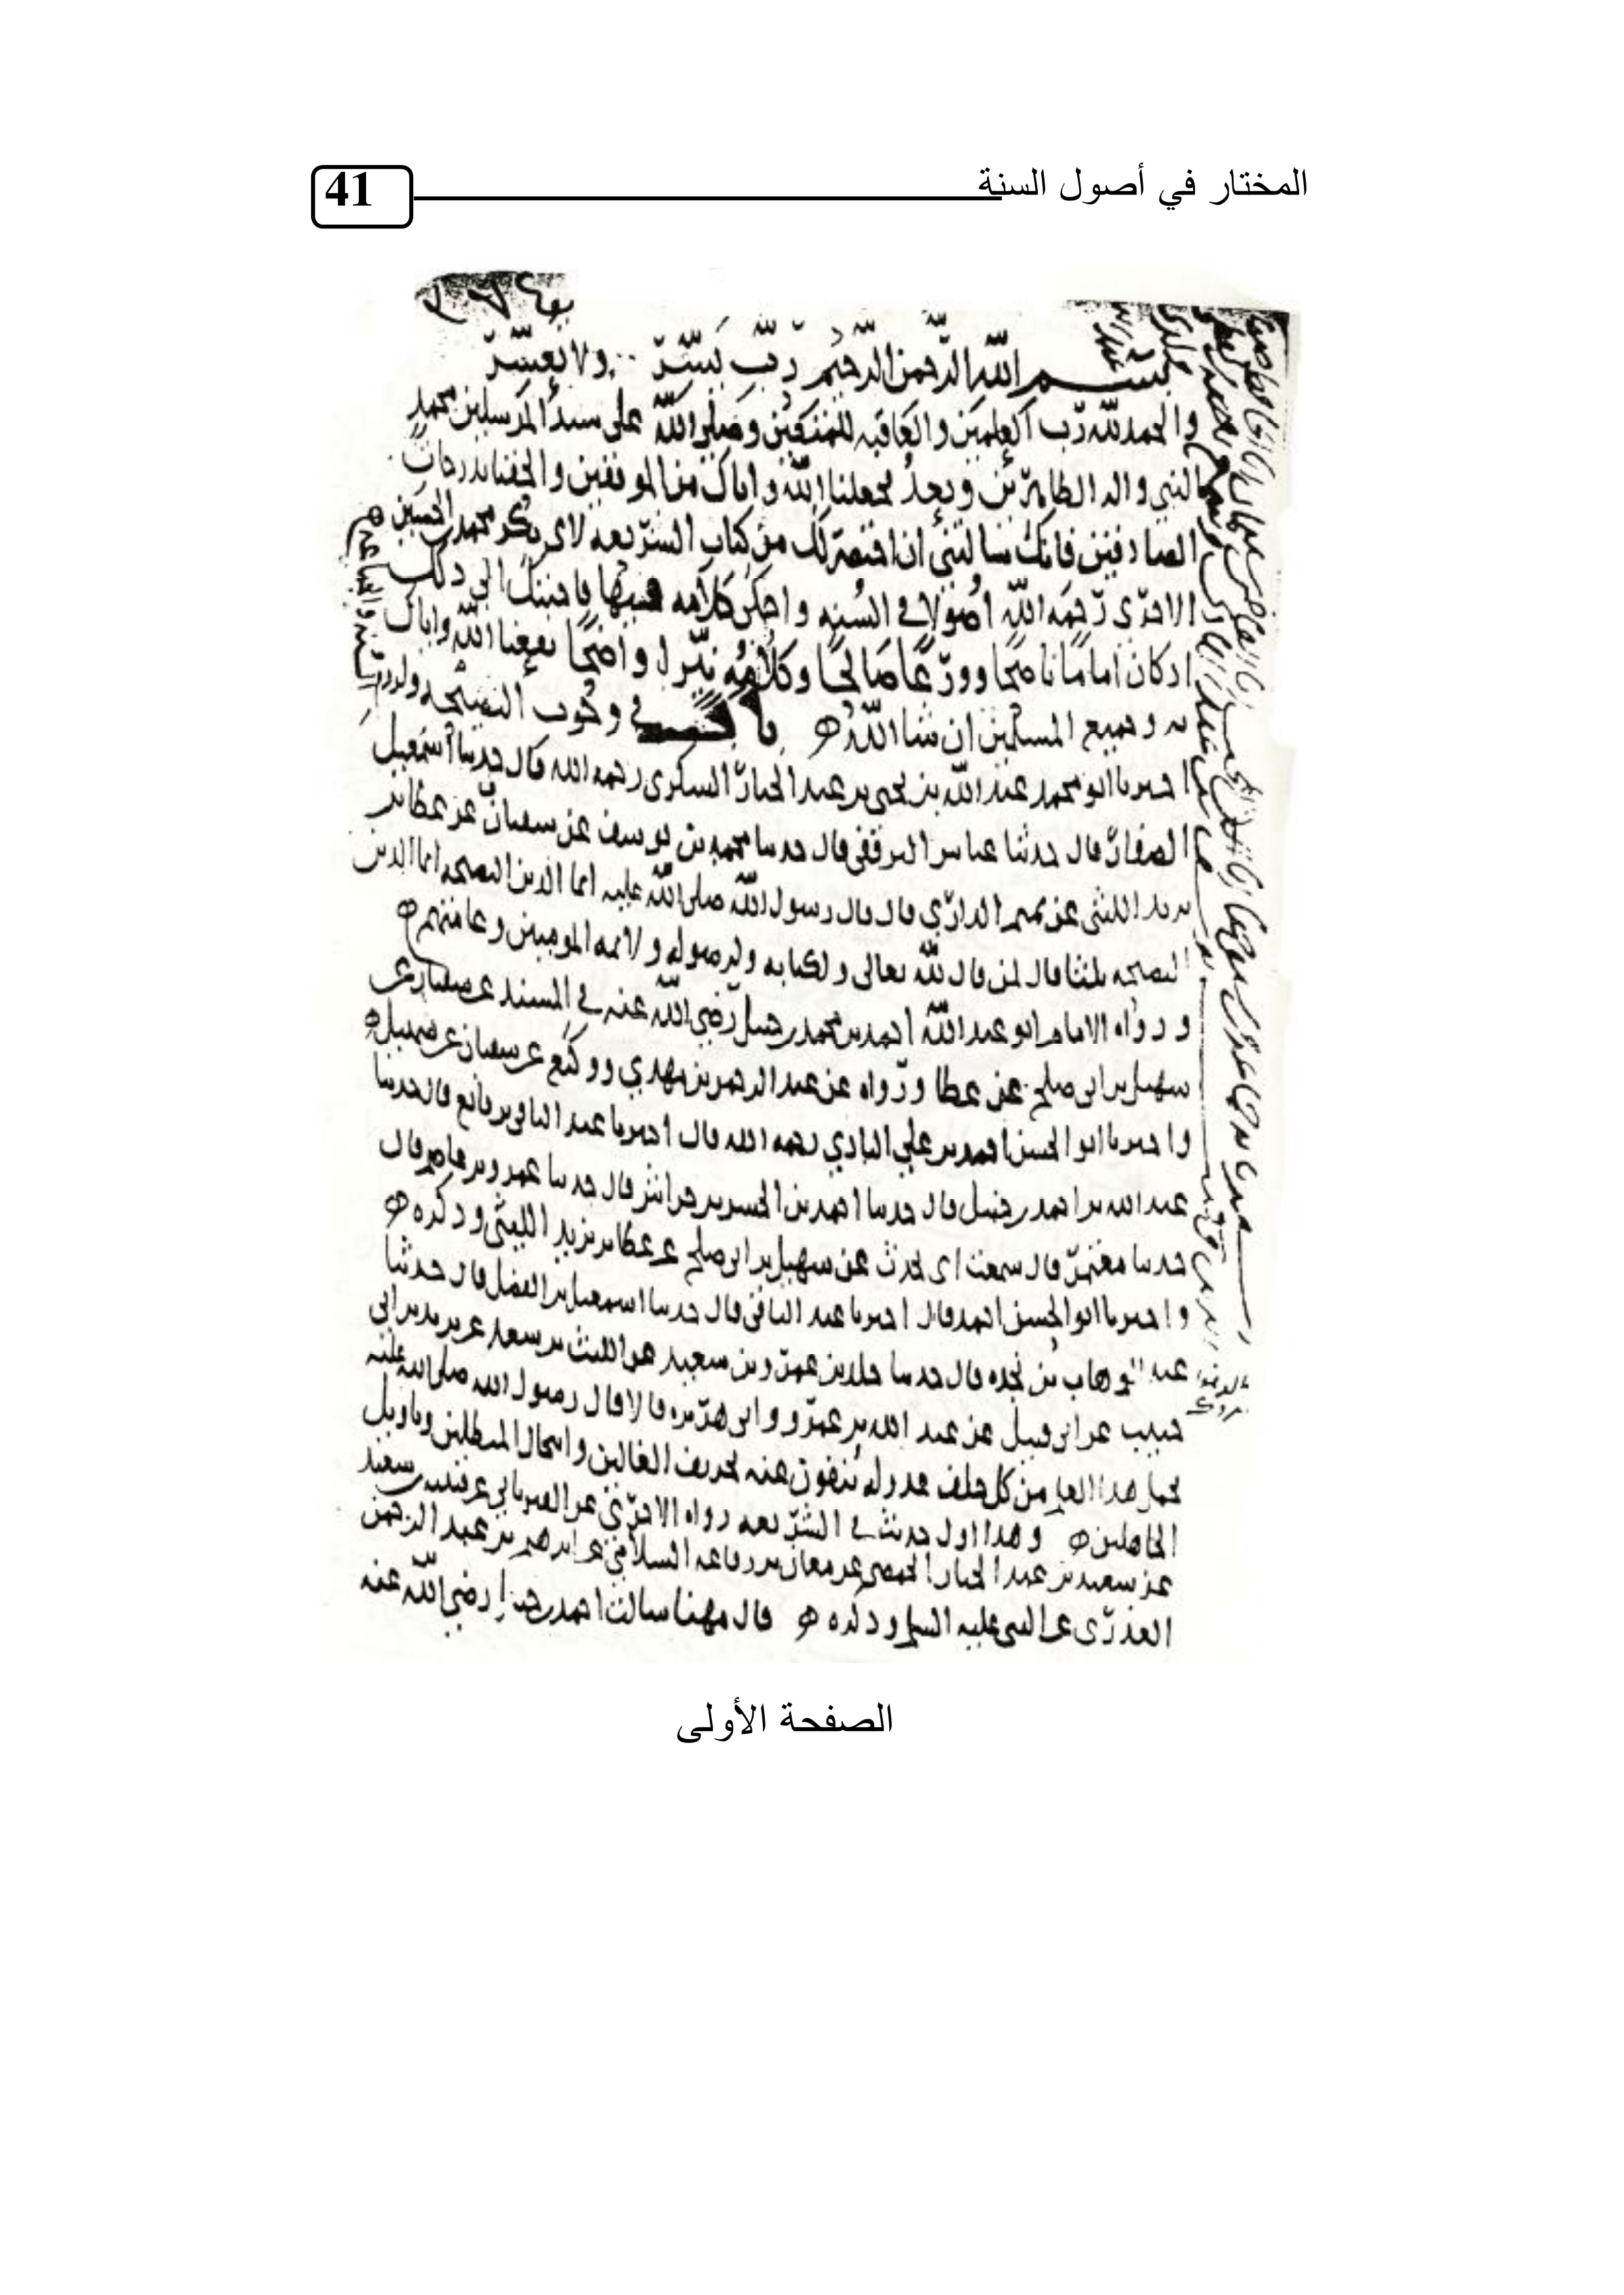 المختار في أصول السنة
41
بسم الله الرحمن الرحيم رب يسر ولا تعسر
والحمد لله رب العلمين والعاقبه للمتقين وصلى الله على سيد المرسلين محمد
النبي واله الطاهرين وبعد جعلنا الله واياك من الموفقين والحقنا بدرجات
الصادقين فانك سالتني ان اختصر لك من كتاب الشريعه لابي بكر محمد بن الحسين
الاجري رحمه الله اصولا في السنه واحكي كلامه فيها فاجبتك الى ذلك
اذ كان اماما ناصحا وورعا صالحا وكلامه نير واضحا نفعنا الله واياك
به وجميع المسلمين ان شا الله باب في وجوب النصيحه
اخبرنا ابو محمد عبد الله بن يحيى بن عبد الجبار السكري رحمه الله قال حدثنا اسمعيل
الصفار قال حدثنا عباس الترقفي قال حدثنا محمد بن يوسف عن سفيان عن عطا بن
يزيد الليثي عن تميم الداري قال قال رسول الله صلى الله عليه انما الدين النصيحه انما الدين
النصيحه ثلثا قال لمن قال لله تعالى ولكتابه ولرسوله ولائمه المومنين وعامتهم
ورواه الامام ابو عبد الله احمد بن محمد بن حنبل رضي الله عنه في المسند عن سفيان عن
سهيل بن ابي صلح عن عطا ورواه عن عبد الرحمن بن مهدي ووكيع عن سفيان عن سهيل
واخبرنا ابو الحسن احمد بن علي البادي رحمه الله قال اخبرنا عبد الباقي بن قانع قال حدثنا
عبد الله بن احمد بن حنبل قال حدثنا احمد بن الحسن بن خراش قال حدثنا عمرو بن عاصم قال
حدثنا معتمر قال سمعت ابي يحدث عن سهيل بن ابي صلح عن عطا بن يزيد الليثي وذكره
واخبرنا ابو الحسن احمد قال اخبرنا عبد الباقي قال حدثنا اسمعيل بن الفضل قال حدثنا
عبد الوهاب بن نجده قال حدثنا خلد بن عمرو بن سعيد عن الليث بن سعد عن يزيد بن ابي
حبيب عن ابي قبيل عن عبد الله بن عمرو وابي هريره قالا قال رسول الله صلى الله عليه
يحمل هذا العلم من كل خلف عدوله ينفون عنه تحريف الغالين وانتحال المبطلين وتاويل
الجاهلين وهذا اول حديث في الشريعه رواه الاجري عن الفريابي عن قتيبه بن سعيد
عن سعيد بن عبد الجبار الحمصي عن معان بن رفاعه السلامي عن ابرهيم بن عبد الرحمن
العذري عن النبي عليه السلم وذكره قال مهنا سالت احمد بن حنبل رضي الله عنه
الصفحة الأولى